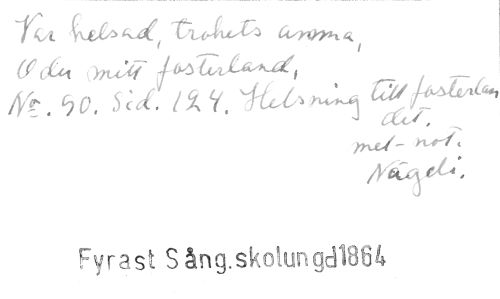 Var helsad, trohets amma,
O du mitt fosterland,
No. 90. Sid. 124. Helsning till fosterlan
det.
mel-not.
Nägeli.
Fyrast Sång.skolungd1864